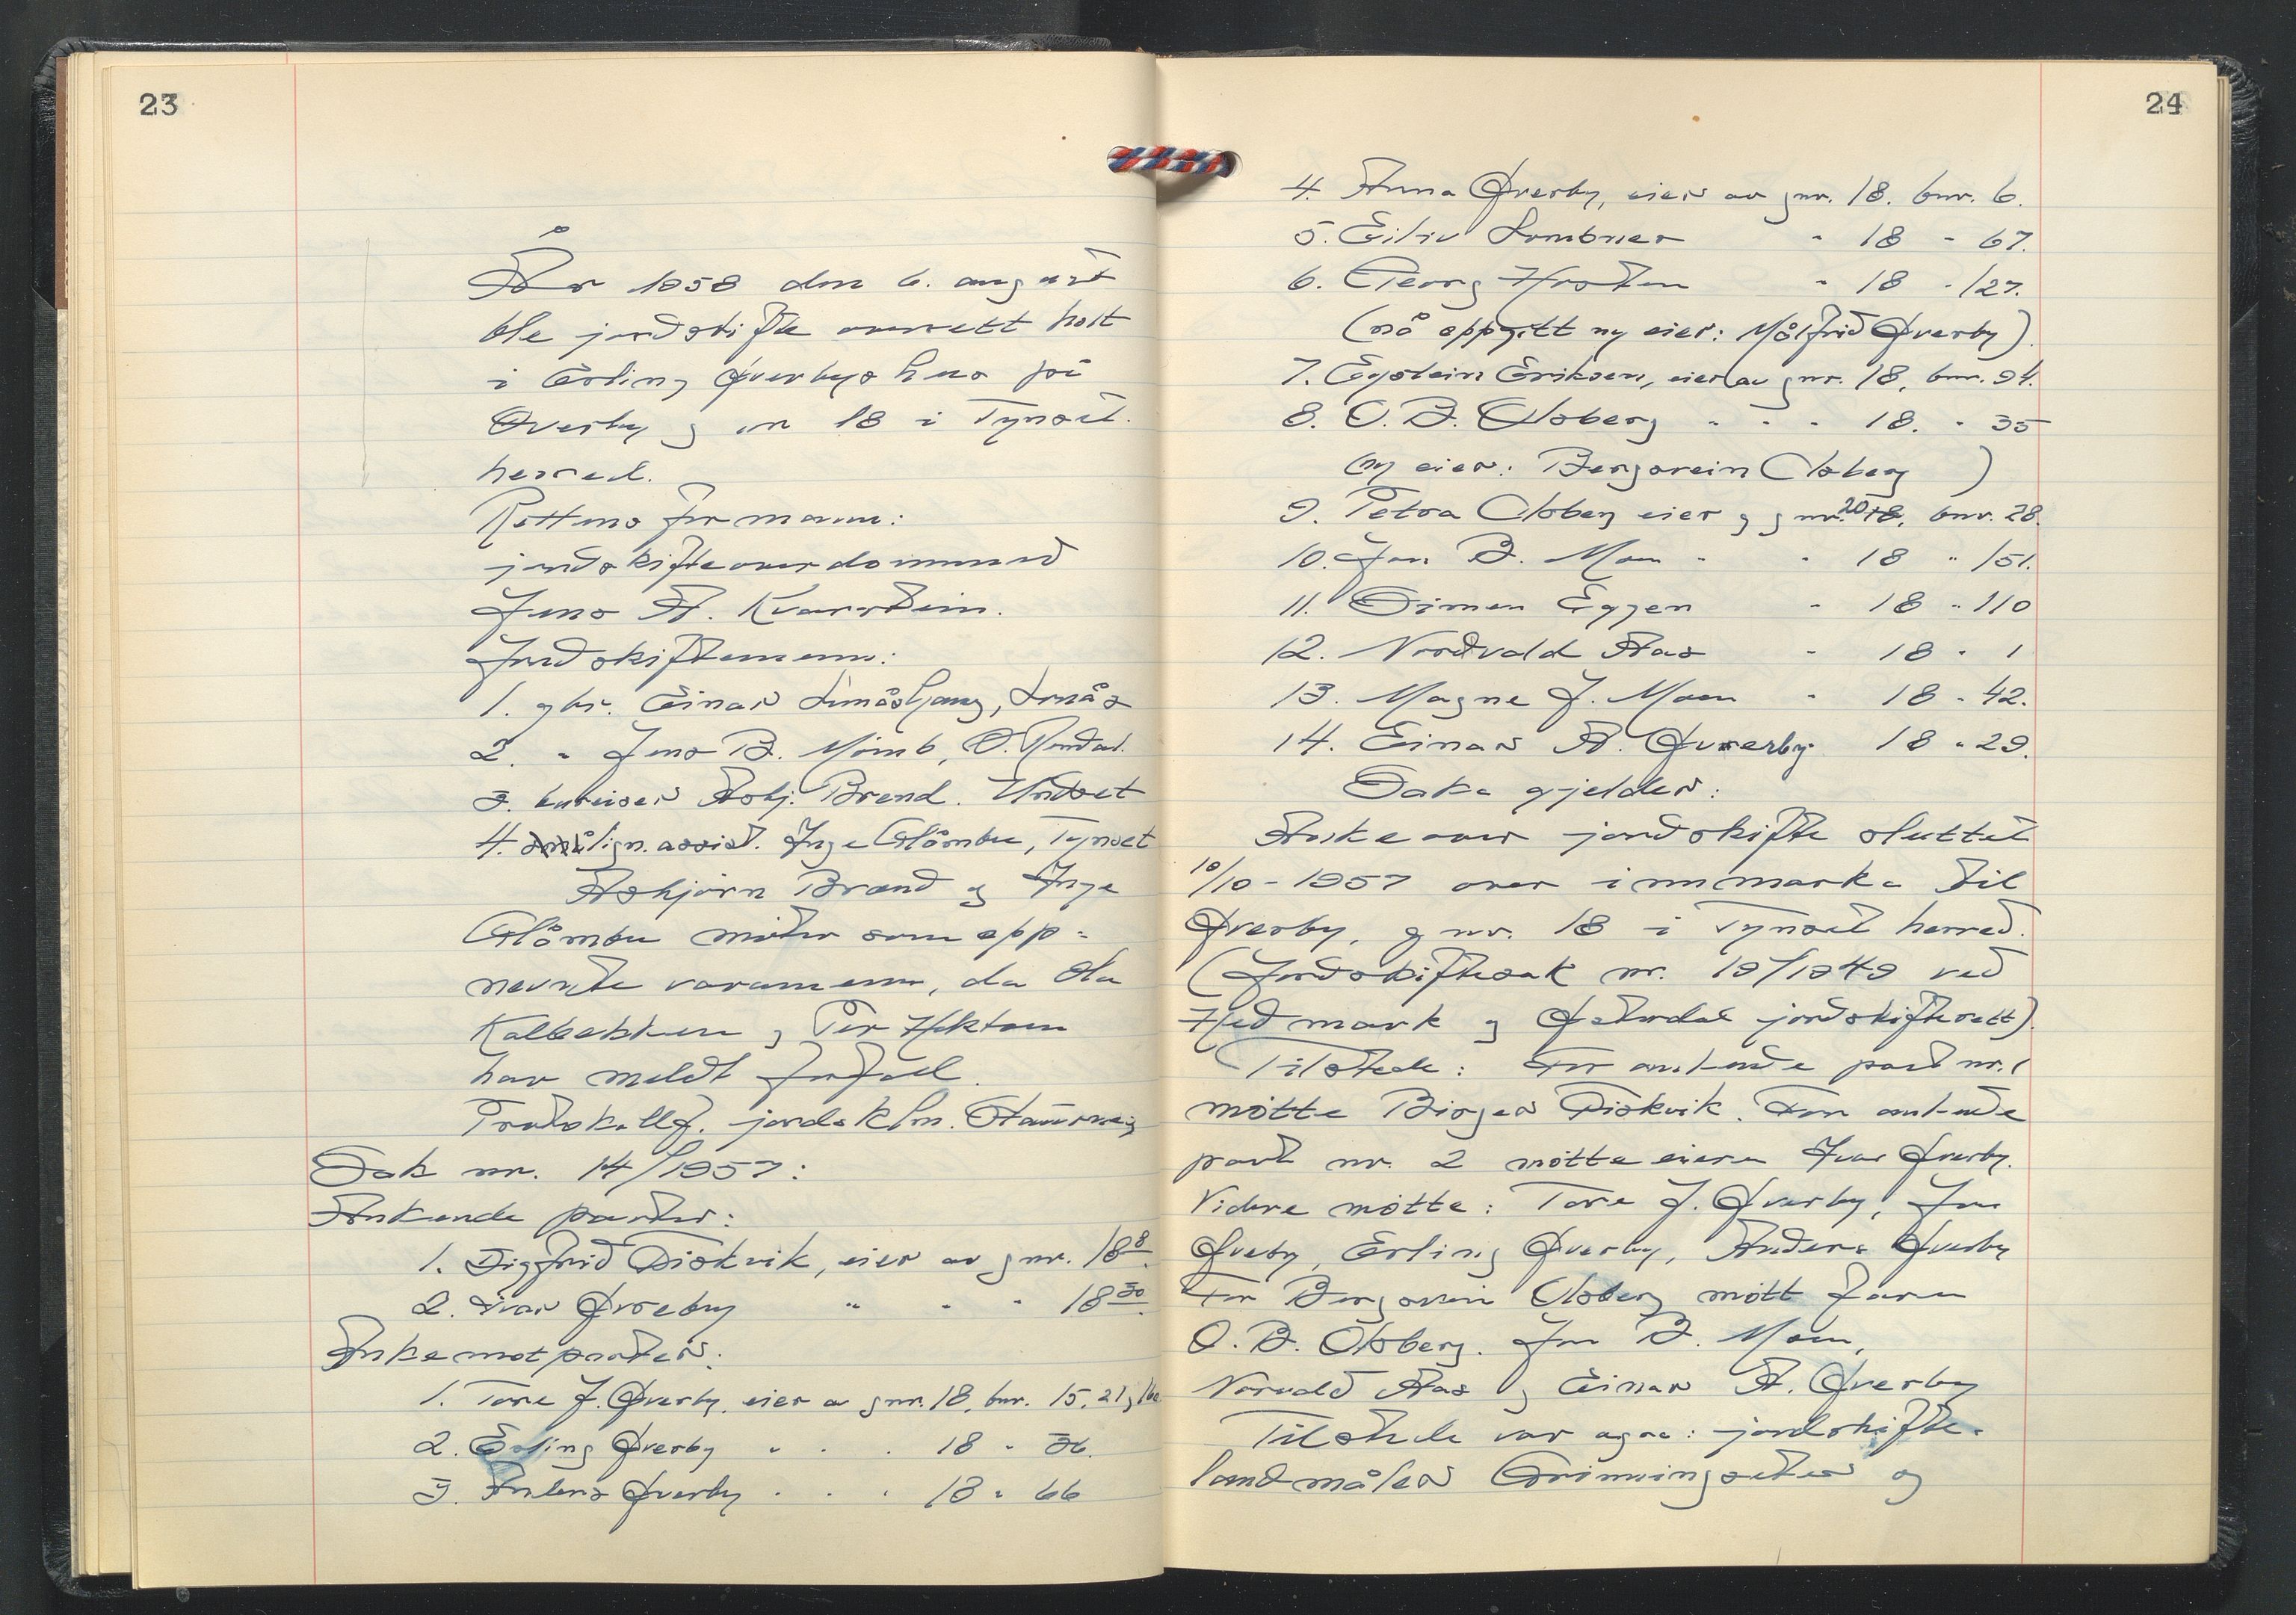 23
År 1958 den 6. august
ble jordskifte overrett holt
i Erling Øverbys hus på
Øverby gnr 18 i Tynset
herred.
Rettens formann:
jordskifteoverdommer
Jens A. Kvarstein.
Jordskiftemenn:
1. gbr. Einar Lonåshaug, Lonås
2. " Jens B. Mømb, Ø. Rendal.
3. bureiser Asbj. Brend. Undset
4. lign. assist. Inge Glåmbu, Tynset
Asbjørn Brænd og Inge
Glåmbu møter som opp-
nevnte varamenn, da Ola
Kolbekken og Per Hektoen
har meldt forfall.
Protokollf. jordsklm.
Sak nr. 14/1957:
Ankende parter:
1. Sigfrid Fiskvik, eier av gnr. 18 8
2. Ivar Øvreby " " " 18 30
Ankemotparter:
1. Tore J. Øverby, eier av gnr. 18, bnr. 15, 21 og
2. Erling Øverby " " " 18 " 36.
3. Anders Øverby " " " 18 " 66
24
4. Anna Øverby, eier av gnr. 18. bnr. 6.
5. Eiliv Lombnes " 18 " 67.
6. Georg Hosten " 18 " 127.
(nå oppgitt ny eier: Målfrid Øverby).
7. Eystein Eriksen, eier av gnr. 18, bnr. 94.
8. O. B. Olsberg " " " 18. " 35
(ny eier: Bergsvein Olsberg )
9. Petra Olsberg eier og gnr. 20 18, bnr. 28.
10. Jon B. Moen " " 18 " 151.
11. Simen Eggen " 18 " 110
12. Nordvald Aas " 18 " 1
13. Magne J. Moen " 18 " 42.
14. Einar A. Øvrerby " 18 " 29.
Saka gjelder:
Anke over jordskifte sluttet
10/10-1957 over innmarka til
Øverby, gnr. 18 i Tynset herred.
(Jordskiftesak nr. 19/1949 ved
Hedmark og Østerdal jordskifterett).
Tilstede: For ankende part nr. 1
møtte Birger Fiskvik. For ankende
part nr. 2 møtte eieren Ivar Øverby.
Videre møtte: Tore J. Øverby, Jon
Øveby, Erling Øverby, Anders Øverby
For Bergsvein Olsberg møtt faren
O. B. Olsberg. Jon B. Moen,
Norvald Aas og Einar A. Øverby
Tilstede var også: jordskifte-
landmåler Grimmingsæter og